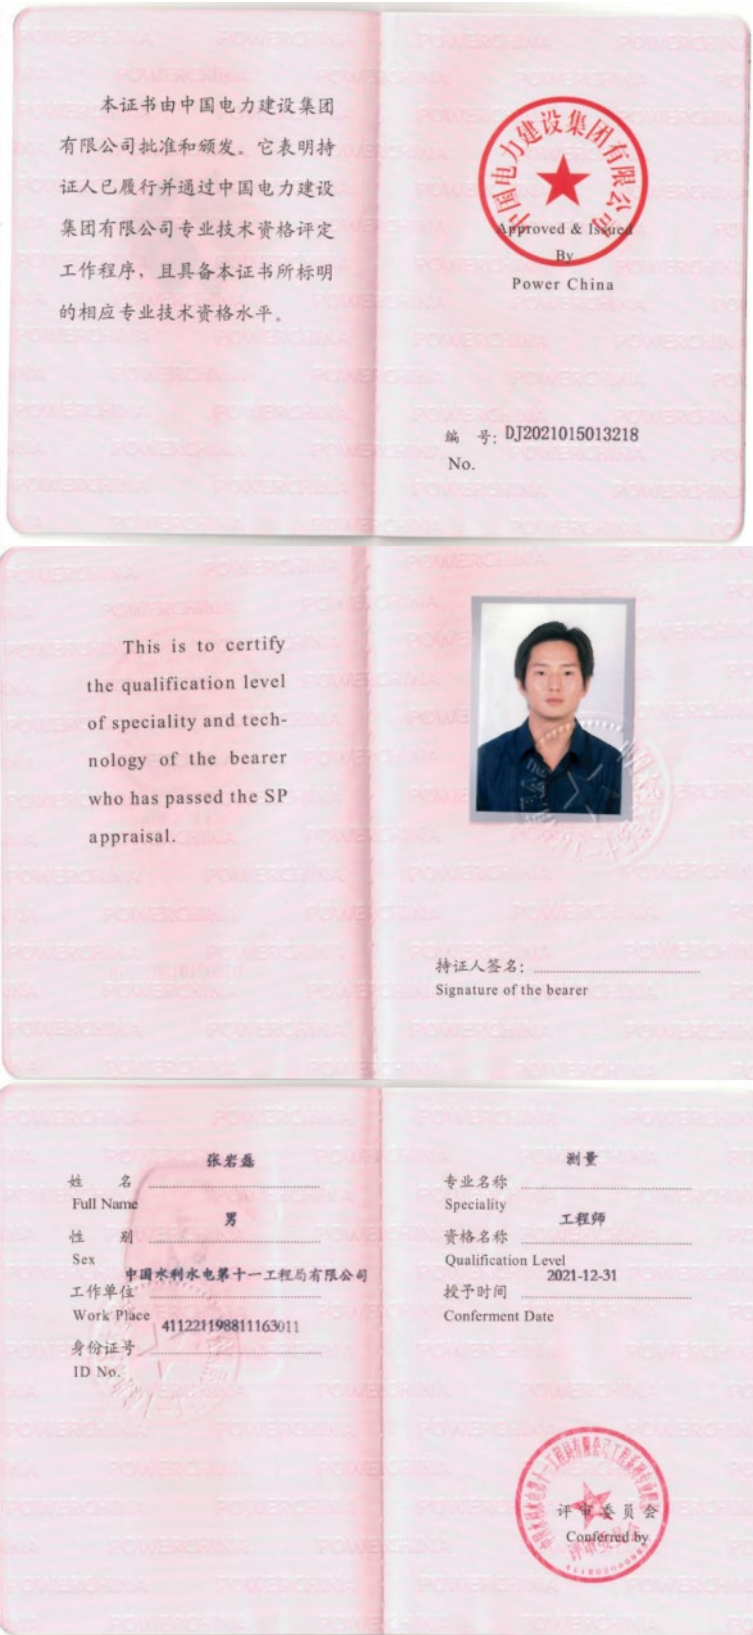 本证书由中国电力建设集团
有限公司批准和颁发。它表明持
证人已履行并通过中国电力建设
集团有限公司专业技术资格评定
工作程序，且具备本证书所标明
的相应专业技术资格水平。
中国电力建设集团有限公司
Approved & Issued
By
Power China
编 号: DJ2021015013218
No.
This is to certify
the qualification level
of speciality and tech-
nology of the bearer
who has passed the SP
appraisal.
持证人签名:
Signature of the bearer
姓 名 张岩磊
Full Name
性 别 男
Sex
工作单位 中国水利水电第十一工程局有限公司
Work Place
身份证号 411221198811163011
ID No.
专业名称 测量
Speciality
资格名称 工程师
Qualification Level
授予时间 2021-12-31
Conferment Date
评审委员会
Conferred by
评审委员会